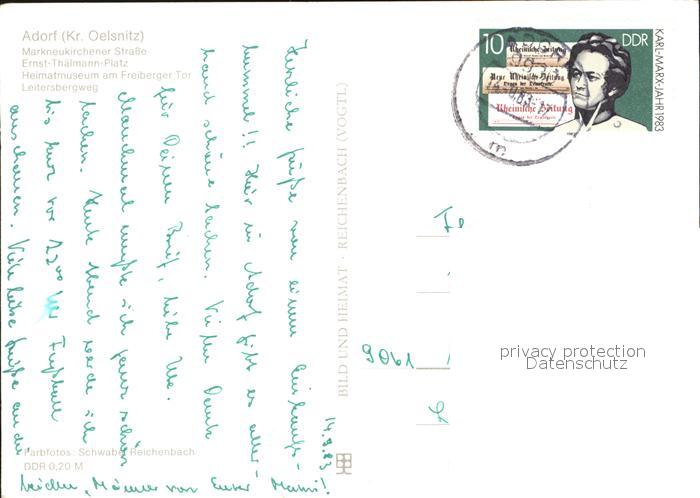 Adorf (Kr. Oelsnitz)
Markneukirchener Straße
Ernst-Thälmann-Platz
Heimatmuseum am Freiberger Tor
Leitersbergweg
10
DDR
KARL-MARX-JAHR 1983
Rheinische Zeitung
Neue Rheinische Zeitung
Organ der Demokratie
Rheinische Zeitung
14.9.83
Herzliche Grüße von einem Einkaufs-
bummel!! Hier in Adorf gibt es aller-
hand schöne Sachen. Vielen Dank
für Deinen Brief, liebe
Manchmal mußte ich ganz schön
lachen. Heute Abend werde ich
bis kurz vor 22.00 Uhr Fußball
anschauen. Viele liebe Grüße an die
beiden Männer von Eurer
BILD UND HEIMAT · REICHENBACH (VOGTL)
9061
privacy protection
Datenschutz
Farbfotos: Schwabe, Reichenbach
DDR 0,20 M